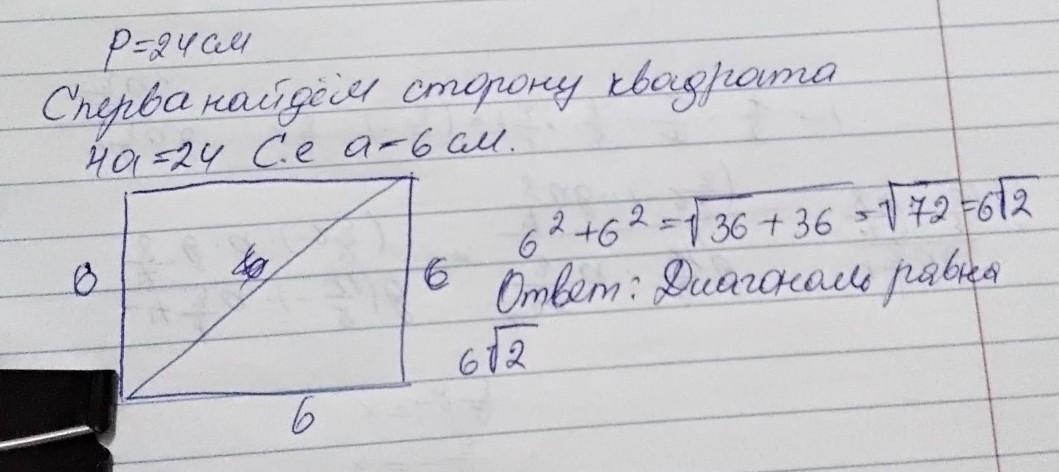 P=24см
Сперва найдём сторону квадрата
4a=24 С.е a=6 см.
6
6
6² + 6² = √36 + 36 = √72 = 6√2
Ответ: Диагональ равна
6√2
6